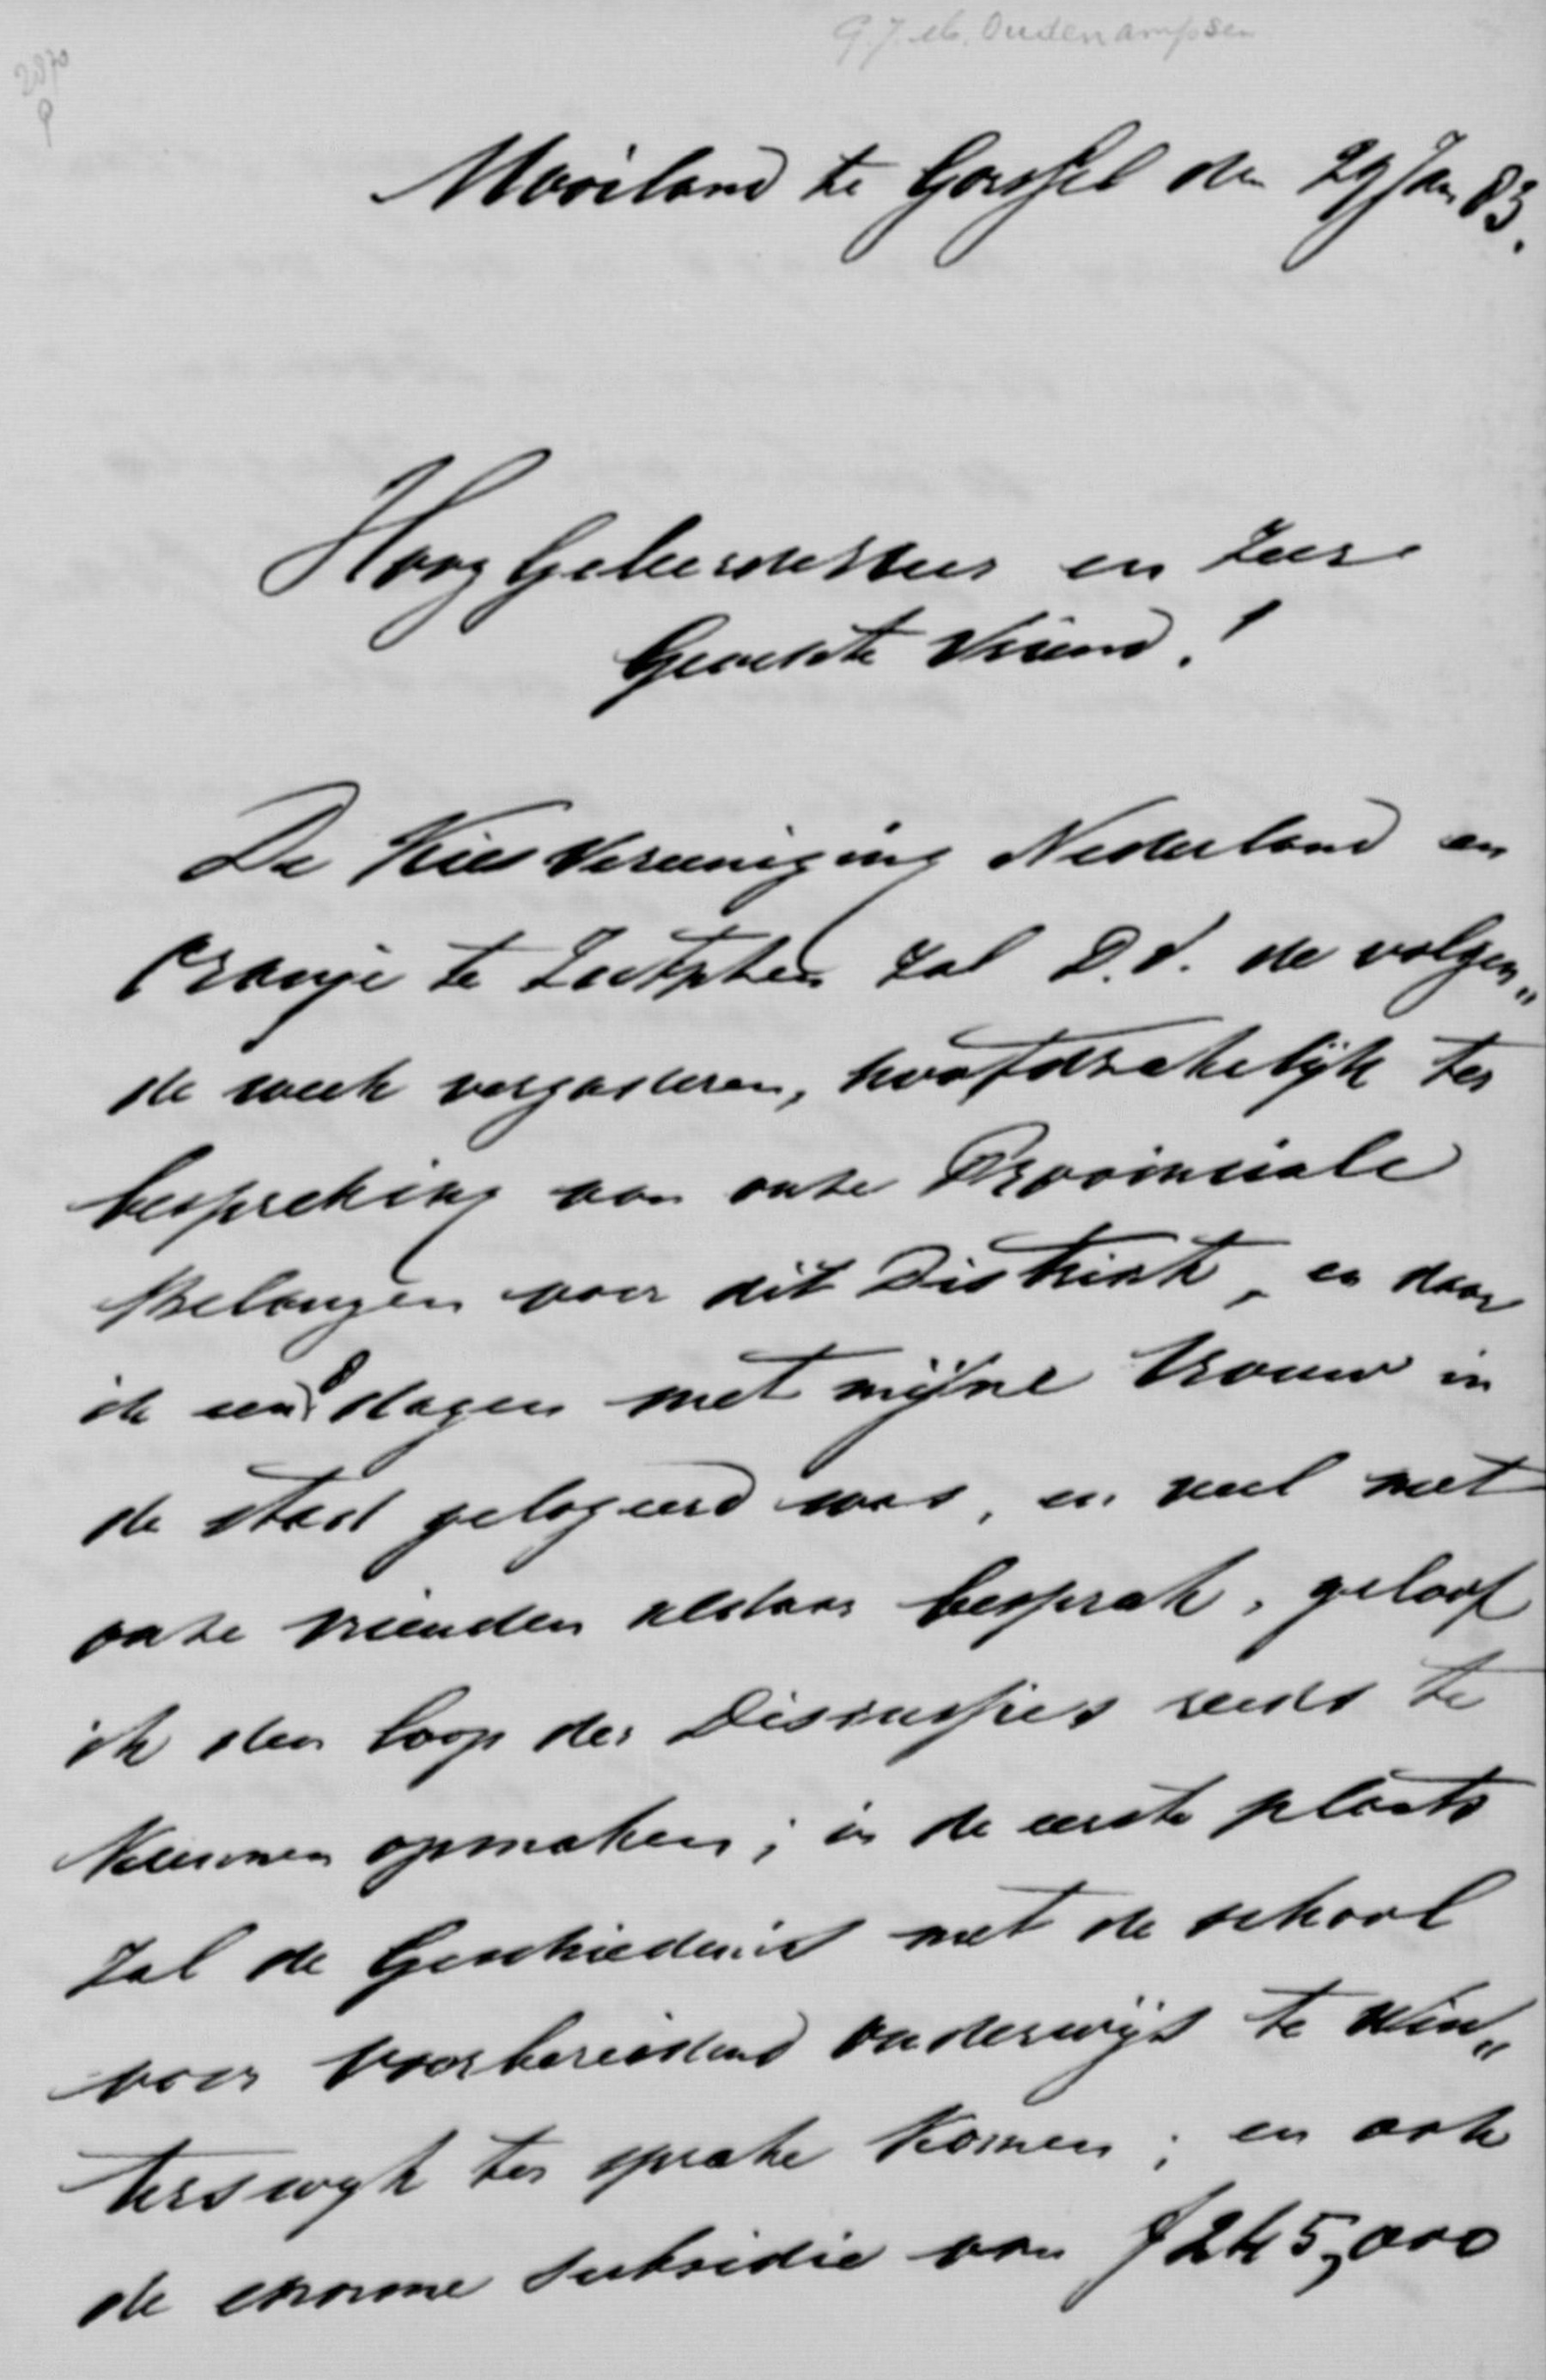 G.J.M. Oudenampsen
2870
Mooiland te Gorssel den 29 Jan 83.
HoogGeleerde Heer en zeer
Geachte Vriend!
De KiesVereeniging Nederland en
Oranje te Zutphen zal D.V. de volgen„
de week vergaderen, hoofdzakelijk ter
bespreking van onze Provinciale
Belangen voor dit District, en daar
ik een 8 dagen met mijne vrouw in
de stad gelogeerd was, en veel met
onze vrienden aldaar besprak, geloof
ik den loop der Discussies reeds te
kunnen opmaken; in de eerste plaats
zal de Geschiedenis met de school
voor voorbereidend onderwijs te Win„
terswyk ter sprake komen; en ook
de enorme subsidie van f 245,000